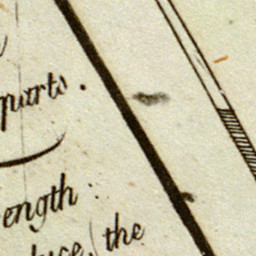 parts.
ength :
the